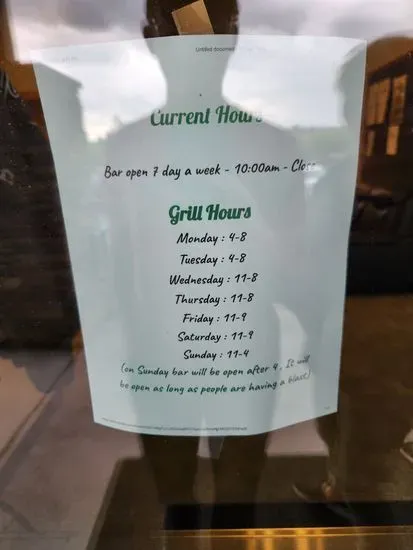 Untitled document
Current Hours
Bar open 7 day a week - 10:00am - Close
Grill Hours
Monday : 4-8
Tuesday : 4-8
Wednesday : 11-8
Thursday : 11-8
Friday : 11-9
Saturday : 11-9
Sunday : 11-4
(on Sunday bar will be open after 4 , It will
be open as long as people are having a blast)